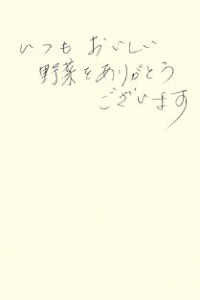 いつも おいしい
野菜をありがとう
ございます